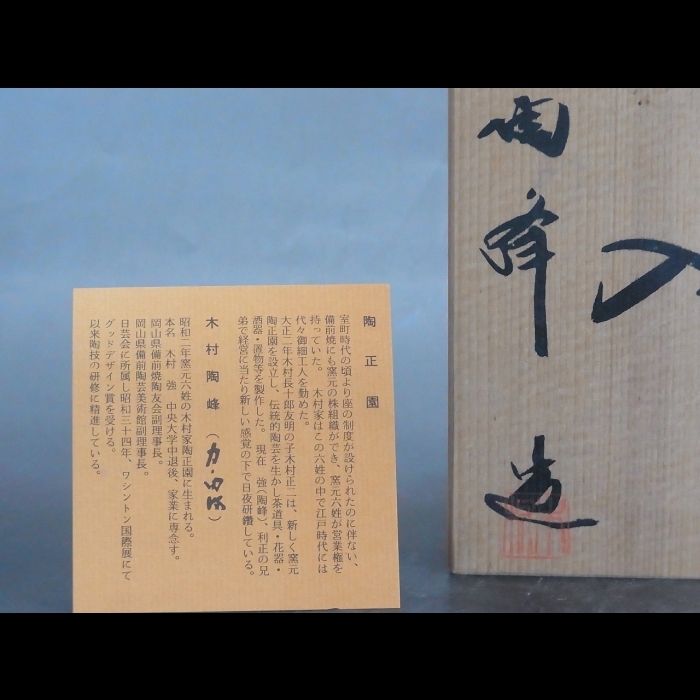 陶正園
室町時代の頃より座の制度が設けられたのに伴ない、
備前焼にも窯元の株組織ができ、窯元六姓が営業権を
持っていた。木村家はこの六姓の中で江戸時代には
代々御細工人を勤めた。
大正二年木村長十郎友明の子木村正二は、新しく窯元
陶正園を設立し、伝統的陶芸を生かし茶道具・花器・
酒器・置物等を製作した。現在 強(陶峰)、利正の兄
弟で経営に当たり新しい感覚の下で日夜研鑽している。
木村陶峰
昭和二年窯元六姓の木村家陶正園に生まれる。
本名 木村 強 中央大学中退後、家業に専念す。
岡山県備前焼陶友会副理事長。
岡山県備前陶芸美術館副理事長。
日芸会に所属し昭和三十四年、ワシントン国際展にて
グッドデザイン賞を受ける。
以来陶技の研修に精進している。
入
陶峰 造